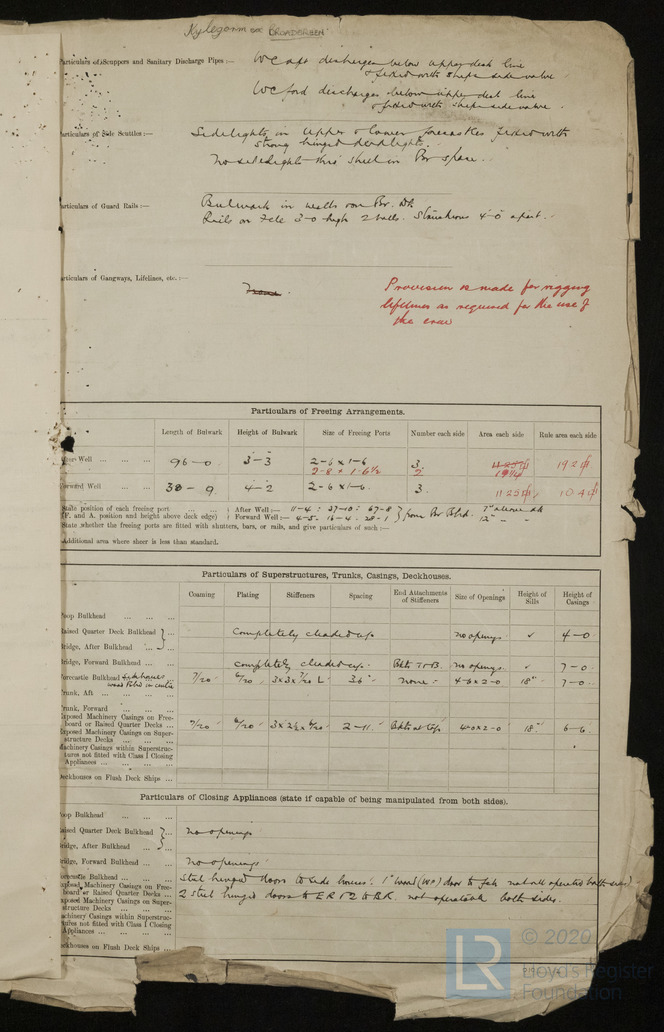 Kylegorm ex BROADGREEN
Particulars of Scuppers and Sanitary Discharge Pipes :—
WC aft discharges below upper deck line
& fitted with ships side valve
WC ford discharges below upper deck line
& fitted with ships side valve.
Particulars of Side Scuttles :—
Sidelights in upper & lower forecastles fitted with
strong hinged deadlights.
No sidelights thro' shell in Br space.
Particulars of Guard Rails :—
Bulwark in wells on Br. Dk
Rails on Fcle 3-0 high 2 rails. Stanchions 4-0 apart.
Particulars of Gangways, Lifelines, etc. :—
None.
Provision is made for rigging
lifelines as required for the use of
the crew
Particulars of Freeing Arrangements.
Length of Bulwark Height of Bulwark Size of Freeing Ports Number each side Area each side Rule area each side
After Well ... ... ... 96-0 3-3 2-6 x 1-6 3 19.2
2-8 x 1-6½ 2
Forward Well ... ... 38-9 4-2 2-6 x 1-6 3 11.25 10.4
State position of each freeing port ... ... ... After Well :— 11-4 : 37-10 : 67-8 from Br Blkd. 7" above dk
(F. and A. position and height above deck edge) Forward Well :— 4-5 16-4 28-1 12" " "
State whether the freeing ports are fitted with shutters, bars, or rails, and give particulars of such :—
Additional area where sheer is less than standard.
Particulars of Superstructures, Trunks, Casings, Deckhouses.
Coaming Plating Stiffeners Spacing End Attachments of Stiffeners Size of Openings Height of Sills Height of Casings
Poop Bulkhead ... ... ...
Raised Quarter Deck Bulkhead ... Completely closed up no openings ✓ 4-0
Bridge, After Bulkhead ...
Bridge, Forward Bulkhead ... ... completely closed up. Bkts T&B. no openings. ✓ 7-0
Forecastle Bulkhead 7/20 6/20 3x3x7/20 L 36" none 4-6x2-0 18" 7-0
Trunk, Aft ... ... ...
Trunk, Forward ... ... ...
Exposed Machinery Casings on Free-
board or Raised Quarter Decks ... 6/20 2-11 Bkts at top 4-0x2-0 18" 6-6
Exposed Machinery Casings on Super-
structure Decks ... ... ...
Machinery Casings within Superstruc-
tures not fitted with Class I Closing
Appliances ... ... ...
Deckhouses on Flush Deck Ships ...
Particulars of Closing Appliances (state if capable of being manipulated from both sides).
Poop Bulkhead ... ... ...
Raised Quarter Deck Bulkhead ... no openings
Bridge, After Bulkhead ...
Bridge, Forward Bulkhead ... ... no openings
Forecastle Bulkhead ... ... Steel hinged doors to side houses. 1" wood (WP) door to not all operated both sides.
Exposed Machinery Casings on Free-
board or Raised Quarter Decks ... 2 steel hinged doors to ER & 2 to BR. not operatable both sides.
Exposed Machinery Casings on Super-
structure Decks ... ... ...
Machinery Casings within Superstruc-
tures not fitted with Class I Closing
Appliances ... ... ...
Deckhouses on Flush Deck Ships ...
LR
© 2020
Lloyd's Register
Foundation